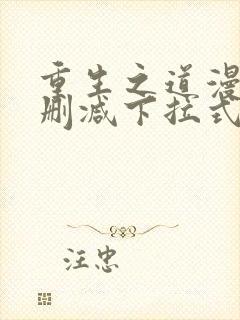 重生之道漫
删减下拉式
汪忠